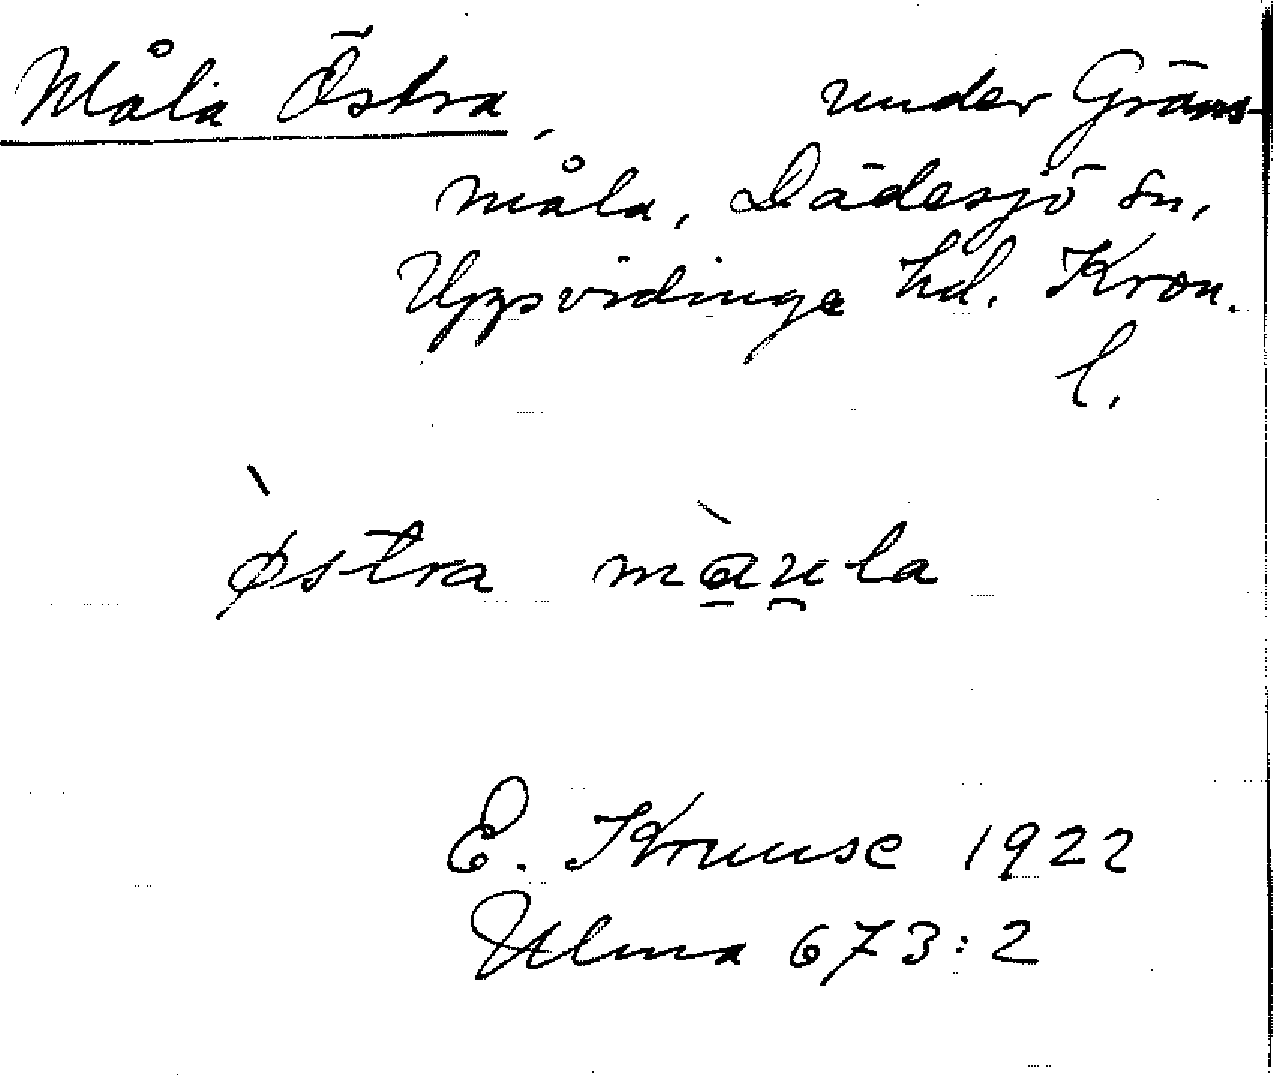 Måla Östra, under Gräns-
måla, Dädesjö sn,
Uppvidinge hd. Kron.
l.
østra måu̯la
E. Kruuse 1922
Ulma 673:2